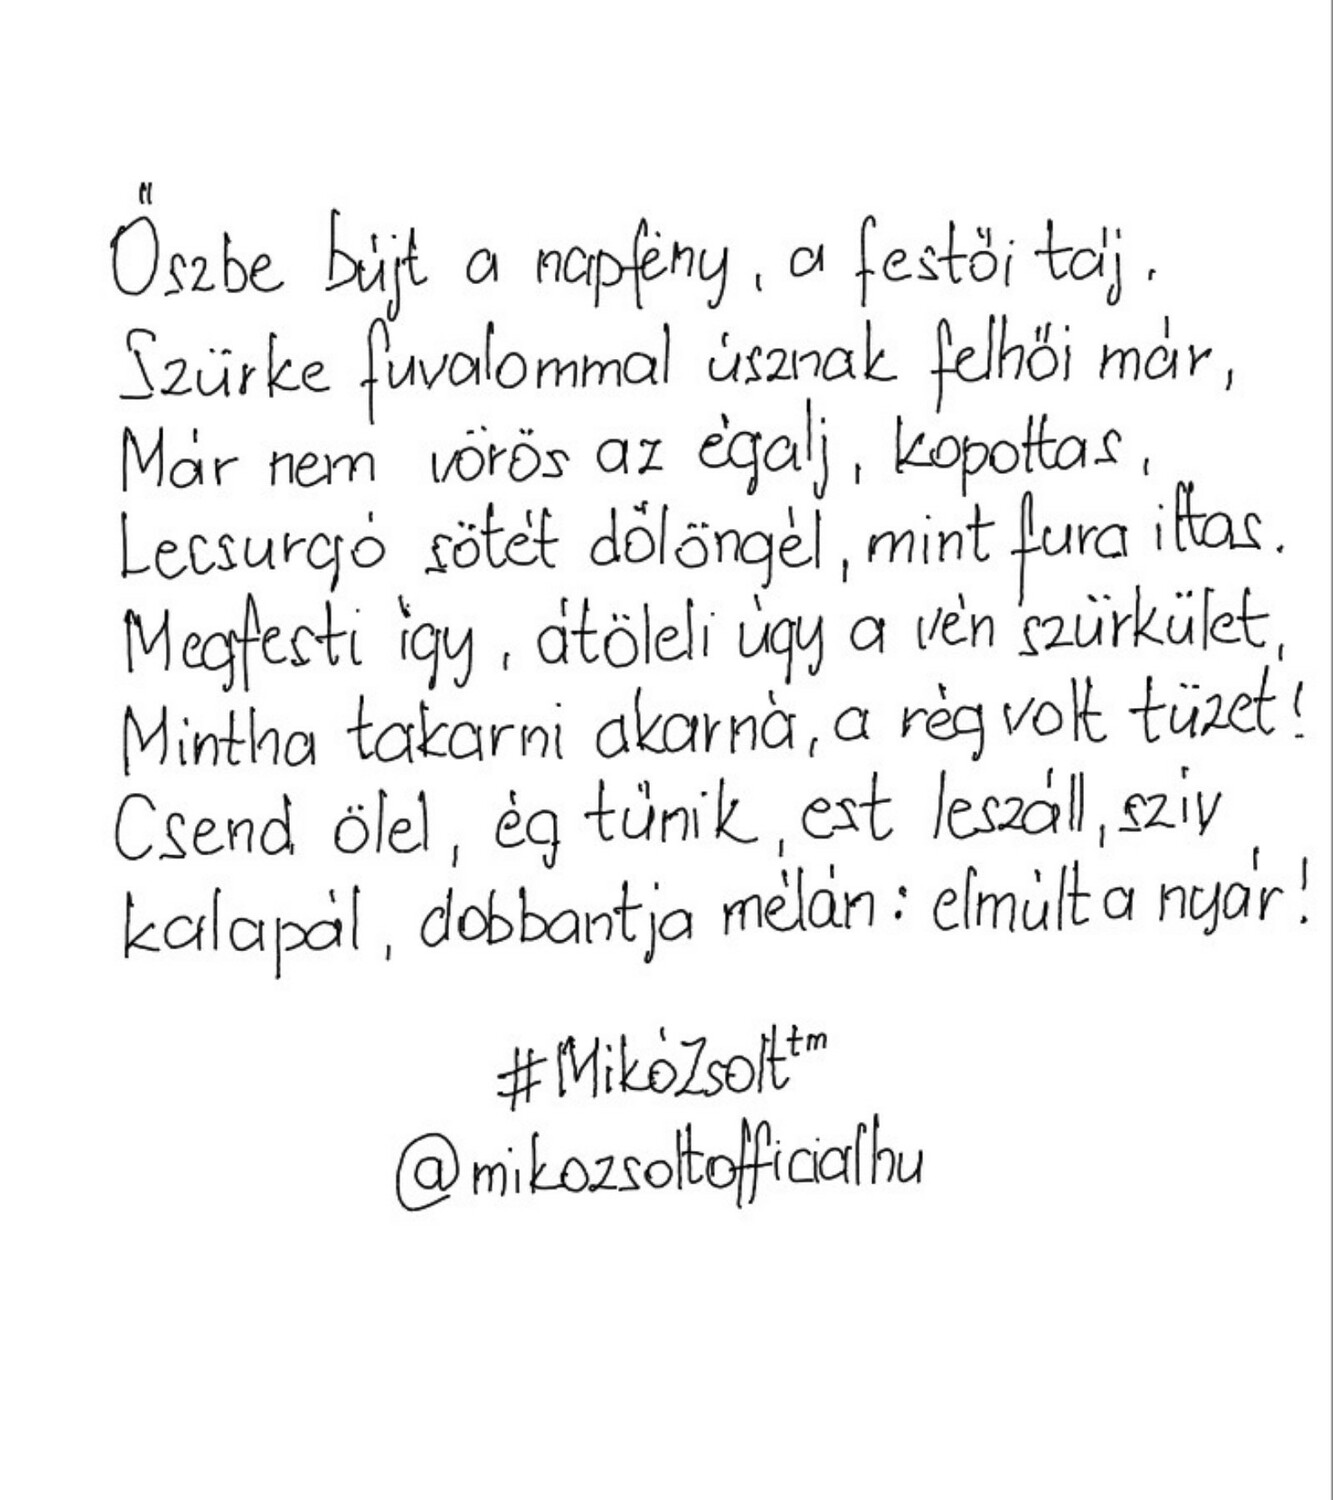 Őszbe bújt a napfény, a festői táj.
Szürke fuvalommal úsznak felhői már,
Már nem vörös az égalj, kopottas,
Lecsurgó sötét dőlöngél, mint fura ittas.
Megfesti így, átöleli úgy a vén szürkület,
Mintha takarni akarná, a rég volt tüzet!
Csend ölel, ég tűnik, est leszáll, szív
kalapál, dobbantja mélán: elmúlt a nyár!
#MikóZsolt™
@mikozsoltofficialhu